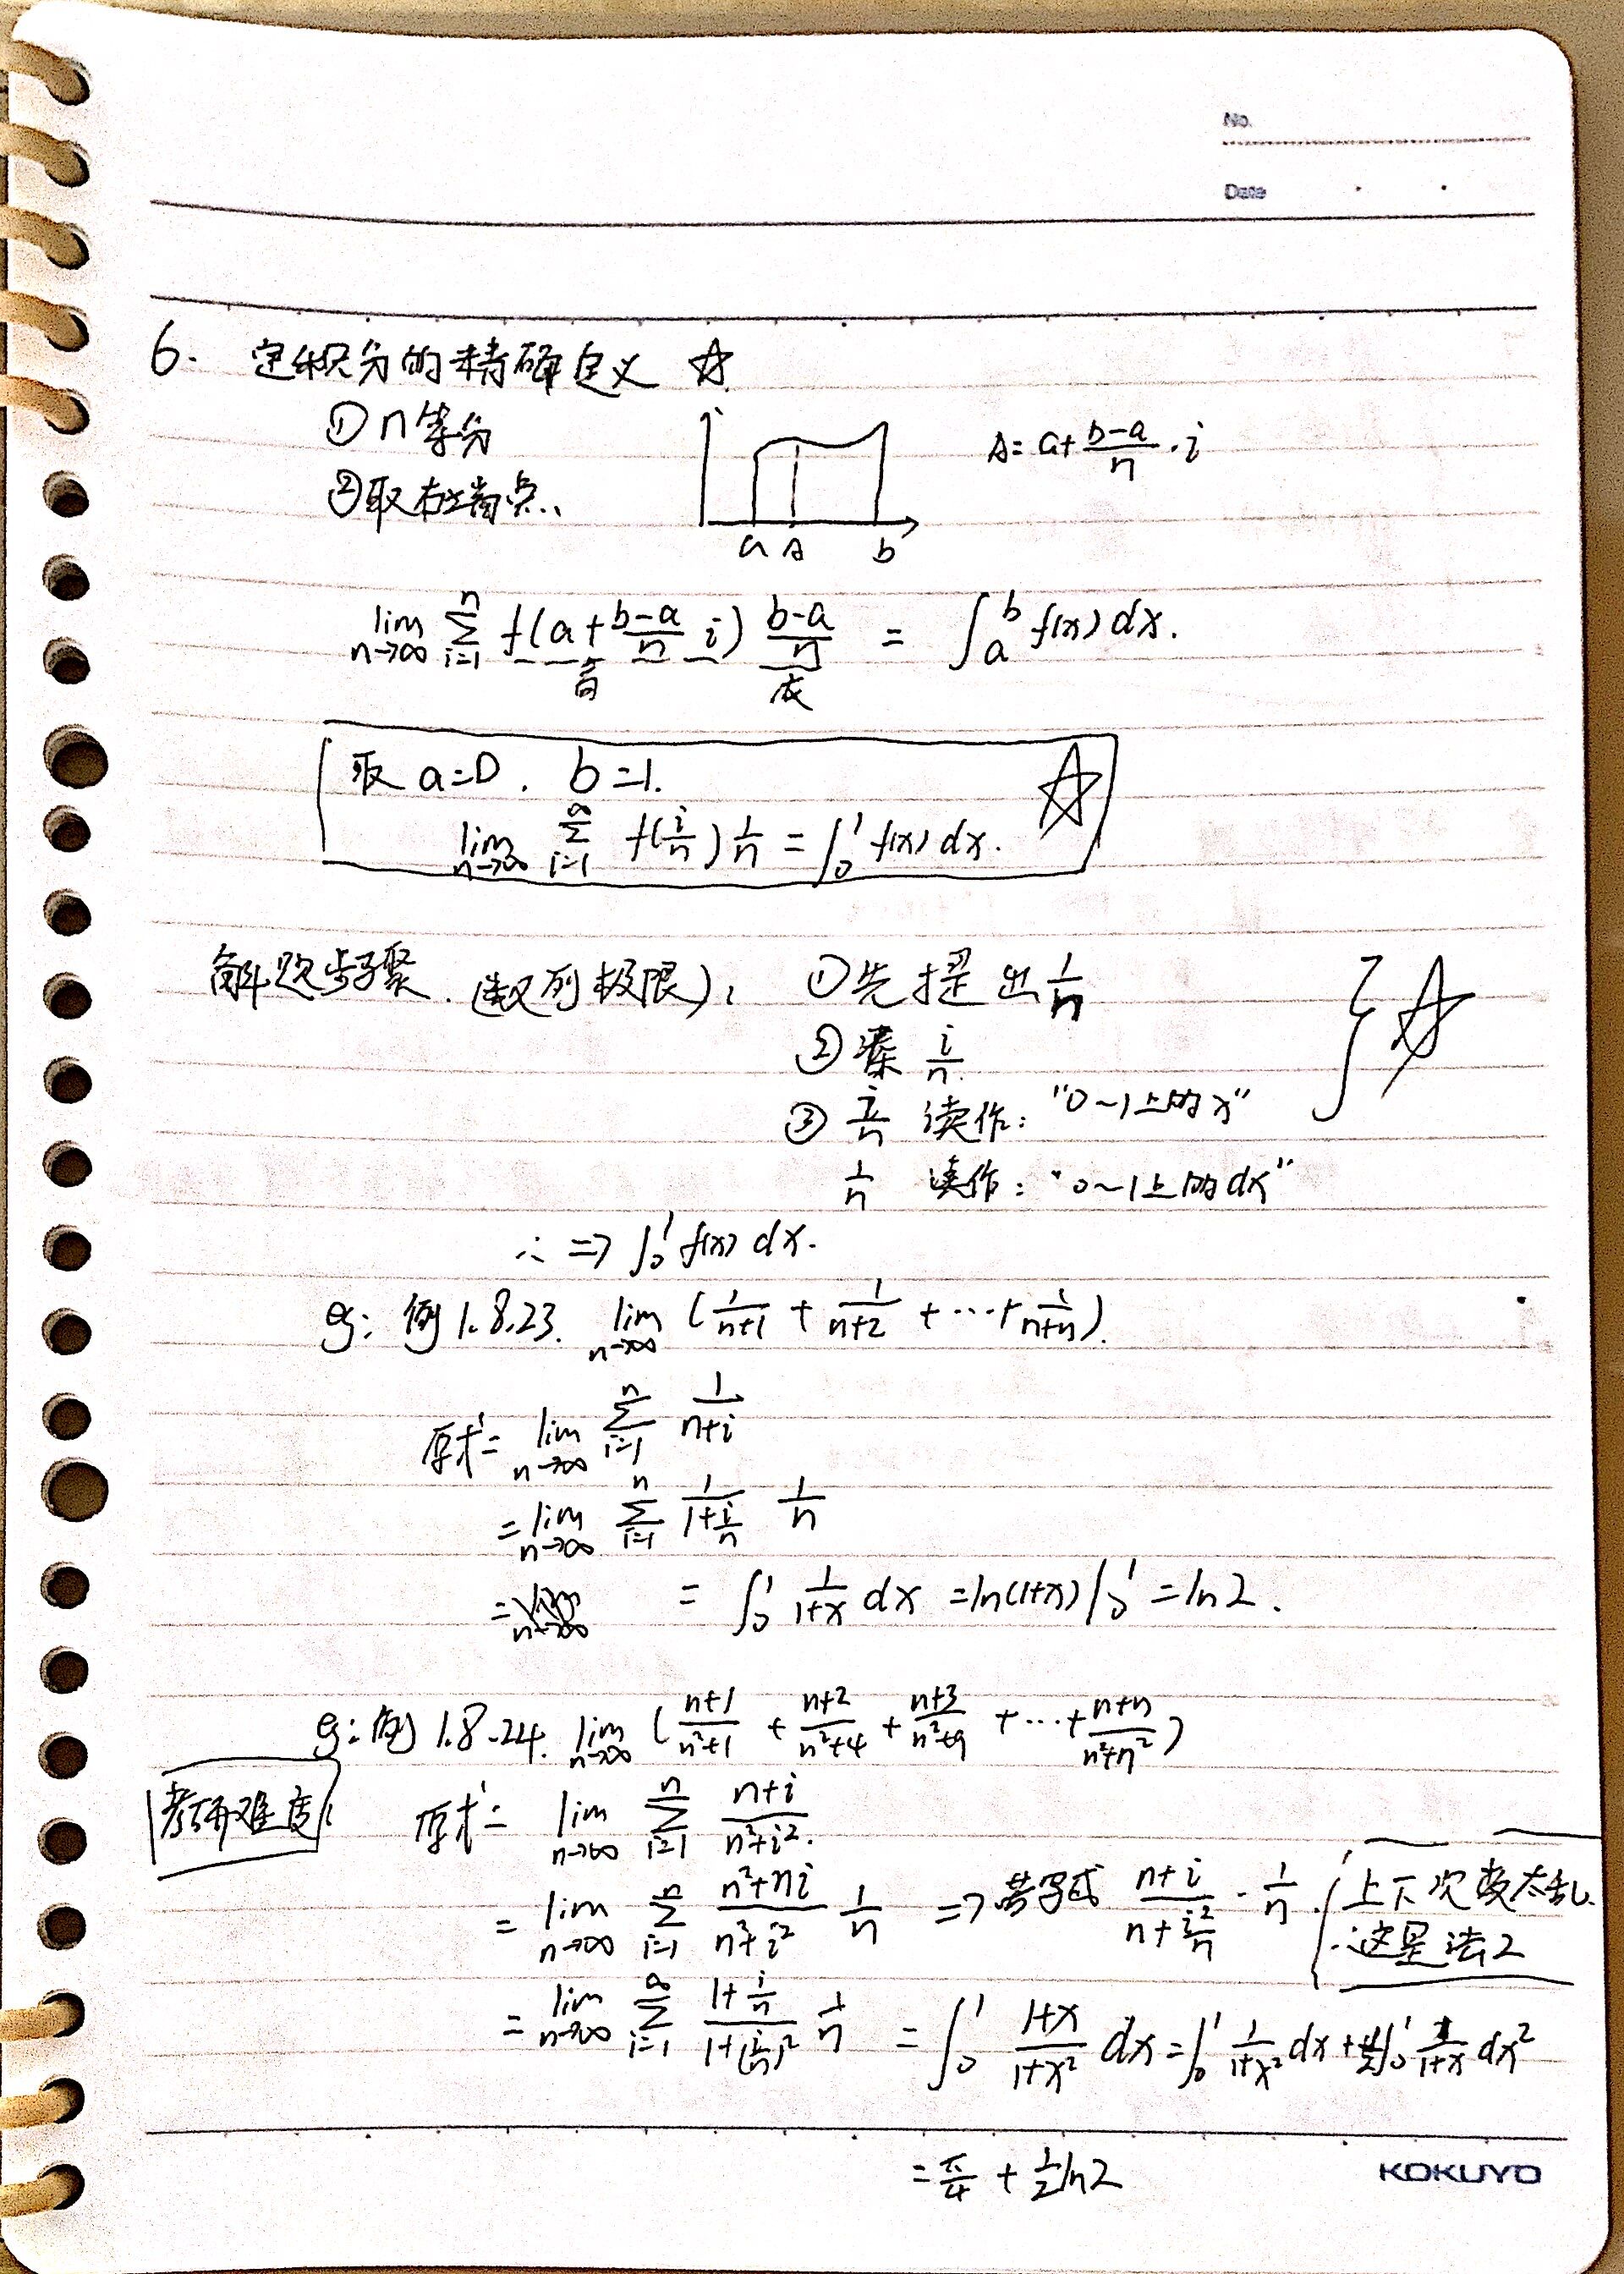 No.
Date
6. 定积分的精确定义 ☆
① n等分
A = a + \frac{b-a}{n} · i
② 取右端点.
a A b
\lim_{n→∞} \sum_{i=1}^{n} f(a + \frac{b-a}{n} i) \frac{b-a}{n} = \int_a^b f(x) dx.
高 底
取 a=0, b=1. ☆
\lim_{n→∞} \sum_{i=1}^{∞} f(\frac{i}{n}) \frac{1}{n} = \int_0^1 f(x) dx.
解题步骤. (数列极限): ① 先提出 \frac{1}{n}
② 凑 \frac{i}{n}. } ☆
③ \frac{i}{n} 读作: "0~1上的x"
\frac{1}{n} 读作: "0~1上的dx"
∴ ⇒ \int_0^1 f(x) dx.
eg: 例1.8.23. \lim_{n→∞} (\frac{1}{n+1} + \frac{1}{n+2} + ··· + \frac{1}{n+n}).
原式 = \lim_{n→∞} \sum_{i=1}^{n} \frac{1}{n+i}
= \lim_{n→∞} \sum_{i=1}^{n} \frac{1}{1+\frac{i}{n}} \frac{1}{n}
= \int_0^1 \frac{1}{1+x} dx = ln(1+x) |_0^1 = ln2.
eg: 例1.8.24. \lim_{n→∞} (\frac{n+1}{n²+1} + \frac{n+2}{n²+4} + \frac{n+3}{n²+9} + ··· + \frac{n+n}{n²+n²})
考研难度! 原式 = \lim_{n→∞} \sum_{i=1}^{n} \frac{n+i}{n²+i²}.
= \lim_{n→∞} \sum_{i=1}^{n} \frac{n²+ni}{n²+i²} \frac{1}{n} ⇒ 若写成 \frac{n+i}{n+\frac{i²}{n}} · \frac{1}{n}. 上下次数太乱.
∴这是法2
= \lim_{n→∞} \sum_{i=1}^{∞} \frac{1+\frac{i}{n}}{1+(\frac{i}{n})²} \frac{1}{n} = \int_0^1 \frac{1+x}{1+x²} dx = \int_0^1 \frac{1}{1+x²} dx + \frac{1}{2} \int_0^1 \frac{1}{1+x} dx²
= \frac{π}{4} + \frac{1}{2} ln2
KOKUYO